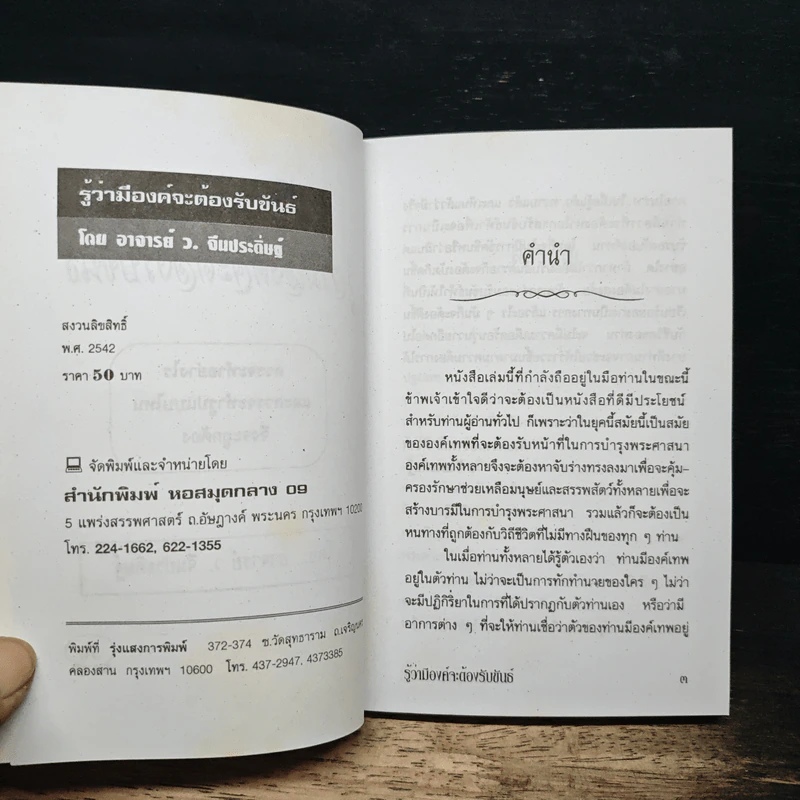 รู้ว่ามีองค์จะต้องรับขันธ์
โดย อาจารย์ ว. จีนประดิษฐ์
สงวนลิขสิทธิ์
พ.ศ. 2542
ราคา 50 บาท
จัดพิมพ์และจำหน่ายโดย
สำนักพิมพ์ หอสมุดกลาง 09
5 แพร่งสรรพศาสตร์ ถ.อัษฎางค์ พระนคร กรุงเทพฯ 10200
โทร. 224-1662, 622-1355
พิมพ์ที่ รุ่งแสงการพิมพ์ 372-374 ซ.วัดสุทธาราม ถ.เจริญนคร
คลองสาน กรุงเทพฯ 10600 โทร. 437-2947, 4373385
คำนำ
หนังสือเล่มนี้ที่กำลังถืออยู่ในมือท่านในขณะนี้
ข้าพเจ้าเข้าใจดีว่าจะต้องเป็นหนังสือที่ดีมีประโยชน์
สำหรับท่านผู้อ่านทั่วไป ก็เพราะว่าในยุคนี้สมัยนี้เป็นสมัย
ขององค์เทพที่จะต้องรับหน้าที่ในการบำรุงพระศาสนา
องค์เทพทั้งหลายจึงจะต้องหาจับร่างทรงลงมาเพื่อจะคุ้ม-
ครองรักษาช่วยเหลือมนุษย์และสรรพสัตว์ทั้งหลายเพื่อจะ
สร้างบารมีในการบำรุงพระศาสนา รวมแล้วก็จะต้องเป็น
หนทางที่ถูกต้องกับวิถีชีวิตที่ไม่มีทางฝืนของทุก ๆ ท่าน
ในเมื่อท่านทั้งหลายได้รู้ตัวเองว่า ท่านมีองค์เทพ
อยู่ในตัวท่าน ไม่ว่าจะเป็นการทักทำนวยของใคร ๆ ไม่ว่า
จะมีปฏิกิริยาในการที่ได้ปรากฏกับตัวท่านเอง หรือว่ามี
อาการต่าง ๆ ที่จะให้ท่านเชื่อว่าตัวของท่านมีองค์เทพอยู่
รู้ว่ามีองค์จะต้องรับขันธ์
๓